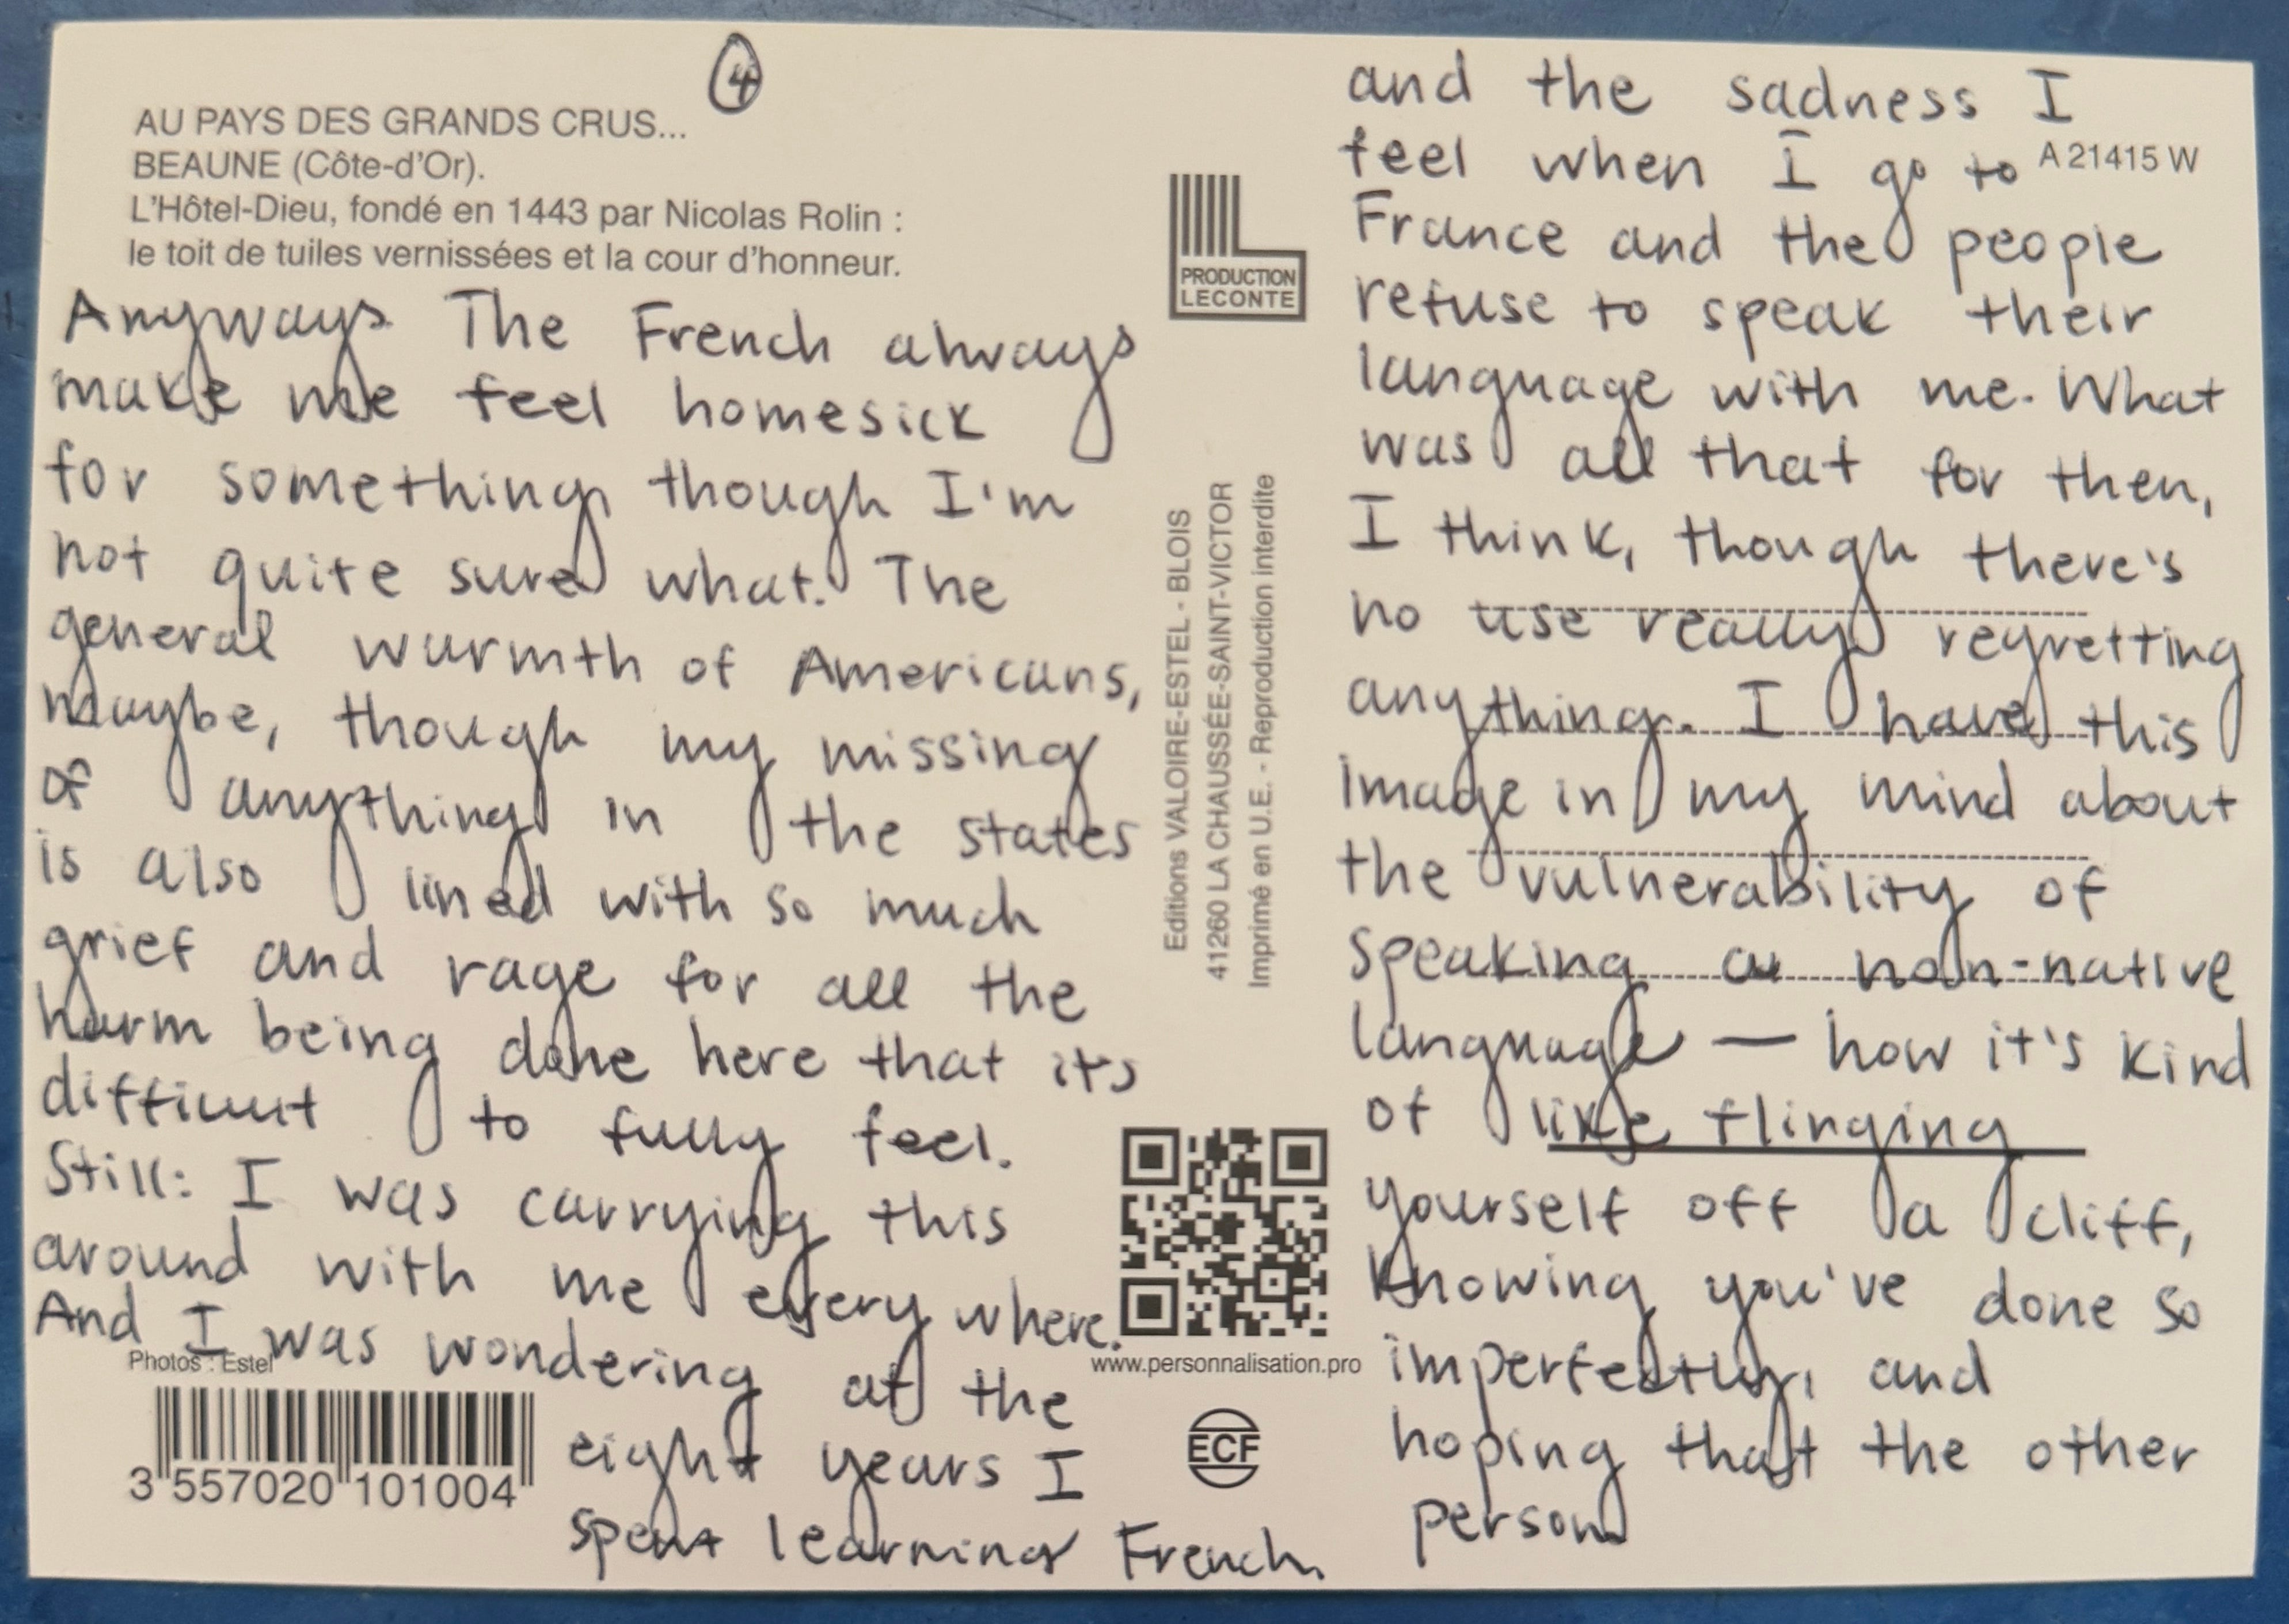 4
AU PAYS DES GRANDS CRUS...
BEAUNE (Côte-d'Or).
L'Hôtel-Dieu, fondé en 1443 par Nicolas Rolin :
le toit de tuiles vernissées et la cour d'honneur.
Anyways. The French always
make me feel homesick
for something, though I'm
not quite sure what. The
general warmth of Americans,
maybe, though my missing
of anything in the states
is also lined with so much
grief and rage for all the
harm being done here that it's
difficult to fully feel.
Still: I was carrying this
around with me everywhere.
And I was wondering at the
eight years I
spent learning French,
Photos : Estel
3 557020 101004
PRODUCTION
LECONTE
Editions VALOIRE-ESTEL - BLOIS
41260 LA CHAUSSÉE-SAINT-VICTOR
Imprimé en U.E. - Reproduction interdite
www.personnalisation.pro
ECF
and the sadness I
feel when I go to
A 21415 W
France and the people
refuse to speak their
language with me. What
was all that for then,
I think, though there's
no use really regretting
anything. I have this
image in my mind about
the vulnerability of
speaking a non-native
language — how it's kind
of like flinging
yourself off a cliff,
knowing you've done so
imperfectly, and
hoping that the other
person